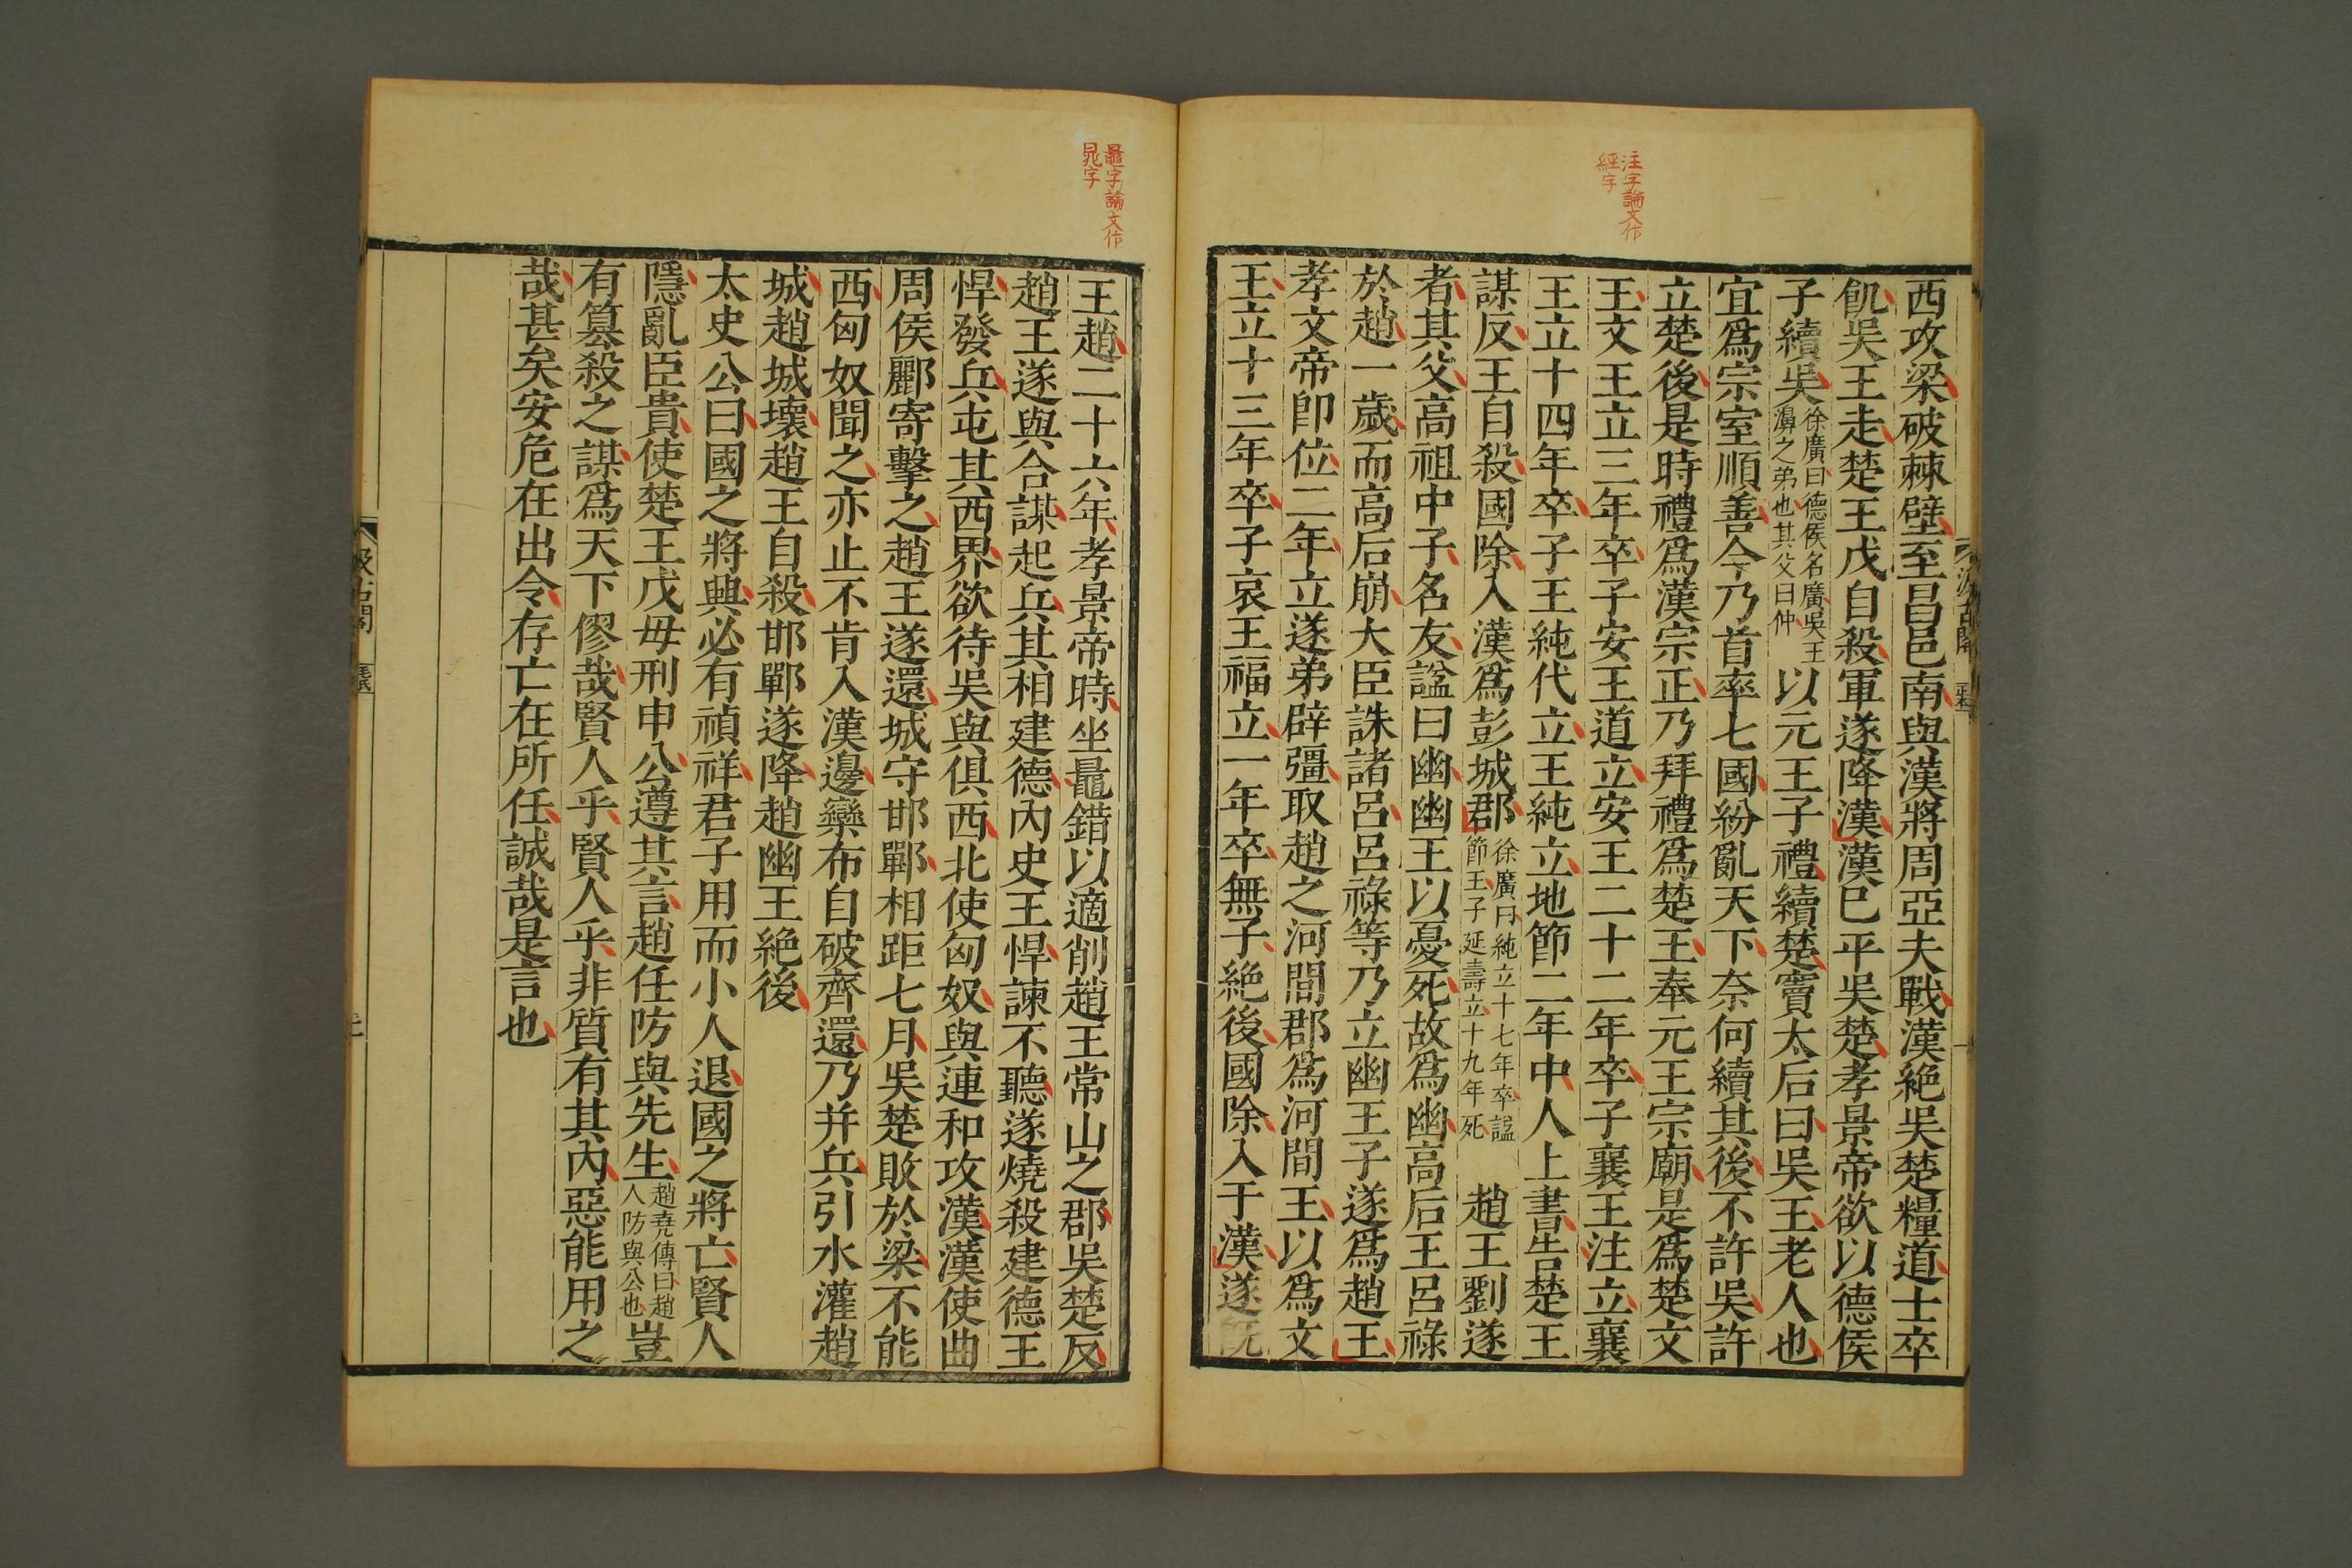 注字論文作
經字
西攻梁破棘壁至昌邑南與漢將周亞夫戰漢絕吳楚糧道士卒
飢吳王走楚王戊自殺軍遂降漢漢已平吳楚孝景帝欲以德侯
子續吳徐廣曰德侯名廣吳王濞之弟也其父曰仲以元王子禮續楚竇太后曰吳王老人也
宜爲宗室順善今乃首率七國紛亂天下奈何續其後不許吳許
立楚後是時禮爲漢宗正乃拜禮爲楚王奉元王宗廟是爲楚文
王文王立三年卒子安王道立安王二十二年卒子襄王注立襄
王立十四年卒子王純代立王純立地節二年中人上書告楚王
謀反王自殺國除入漢爲彭城郡徐廣曰純立十七年卒諡節王子延壽立十九年死 趙王劉遂
者其父高祖中子名友諡曰幽幽王以憂死故爲幽高后王呂祿
於趙一歲而高后崩大臣誅諸呂呂祿等乃立幽王子遂爲趙王
孝文帝卽位二年立遂弟辟彊取趙之河間郡爲河間王以爲文
王立十三年卒子哀王福立一年卒無子絕後國除入于漢遂旣
鼂字論文作
晁字
王趙二十六年孝景帝時坐鼂錯以適削趙王常山之郡吳楚反
趙王遂與合謀起兵其相建德內史王悍諫不聽遂燒殺建德王
悍發兵屯其西界欲待吳與俱西北使匈奴與連和攻漢漢使曲
周侯酈寄擊之趙王遂還城守邯鄲相距七月吳楚敗於梁不能
西匈奴聞之亦止不肯入漢邊欒布自破齊還乃并兵引水灌趙
城趙城壞趙王自殺邯鄲遂降趙幽王絕後
太史公曰國之將興必有禎祥君子用而小人退國之將亡賢人
隱亂臣貴使楚王戊毋刑申公遵其言趙任防與先生趙堯傳曰趙人防與公也豈
有篡殺之謀爲天下僇哉賢人乎賢人乎非質有其內惡能用之
哉甚矣安危在出令存亡在所任誠哉是言也